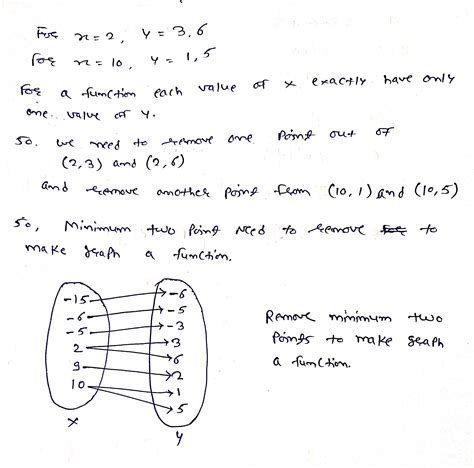 For x = 2, y = 3, 6
for x = 10, y = 1, 5
For a function each value of x exactly have only
one value of y.
So, we need to remove one point out of
(2, 3) and (2, 6)
and remove another point from (10, 1) and (10, 5)
So, Minimum two point need to remove to
make graph a function.
-15 -6
-6 -5
-5 -3
2 3
9 6
10 2
1
5
x
y
Remove minimum two
points to make graph
a function.